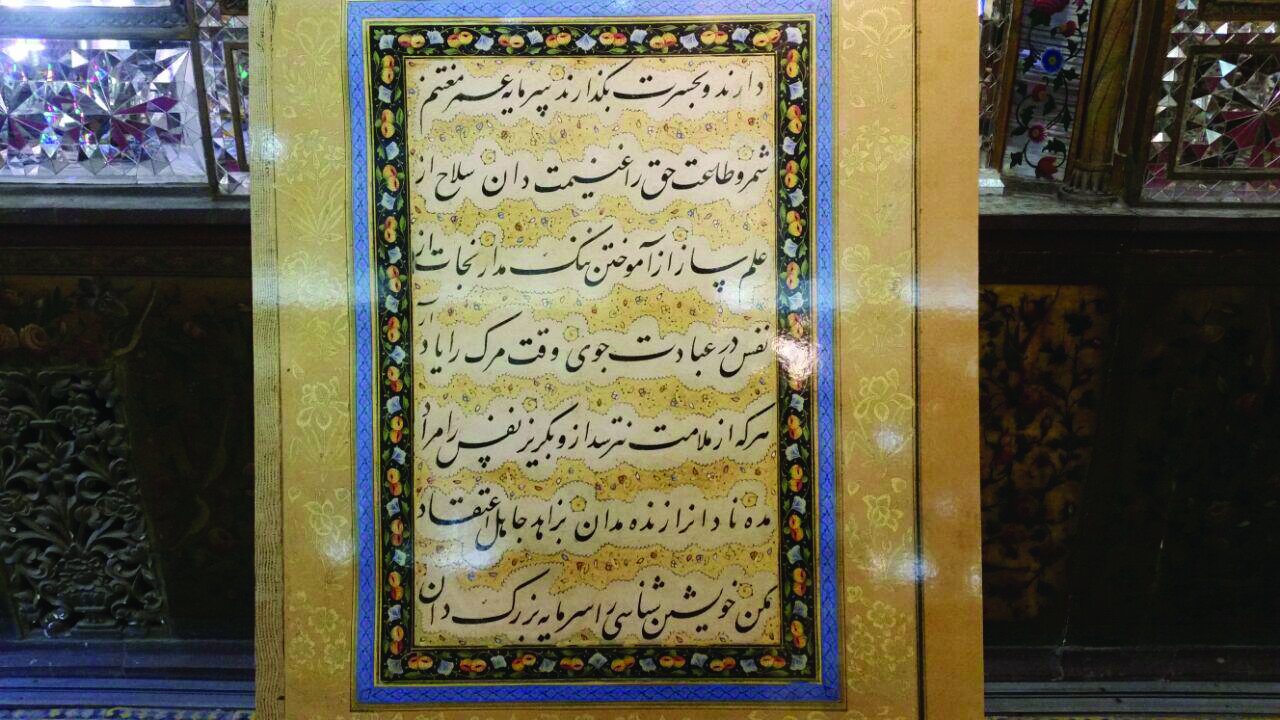 دارند و بحسرت بگذارند سرمایه عمر مغتنم
شمر و طاعت حق را غنیمت دان سلاح از
علم ساز از آموختن ننگ مدار نجات از
نفس در عبادت جوی وقت مرگ را یاد آر
هر که از ملامت نترسد ازو بگریز نفس را مراد
مده نادانرا زنده مدان بزاهد جاهل اعتقاد
مکن خویشتن شناسی را سرمایه بزرگ دان